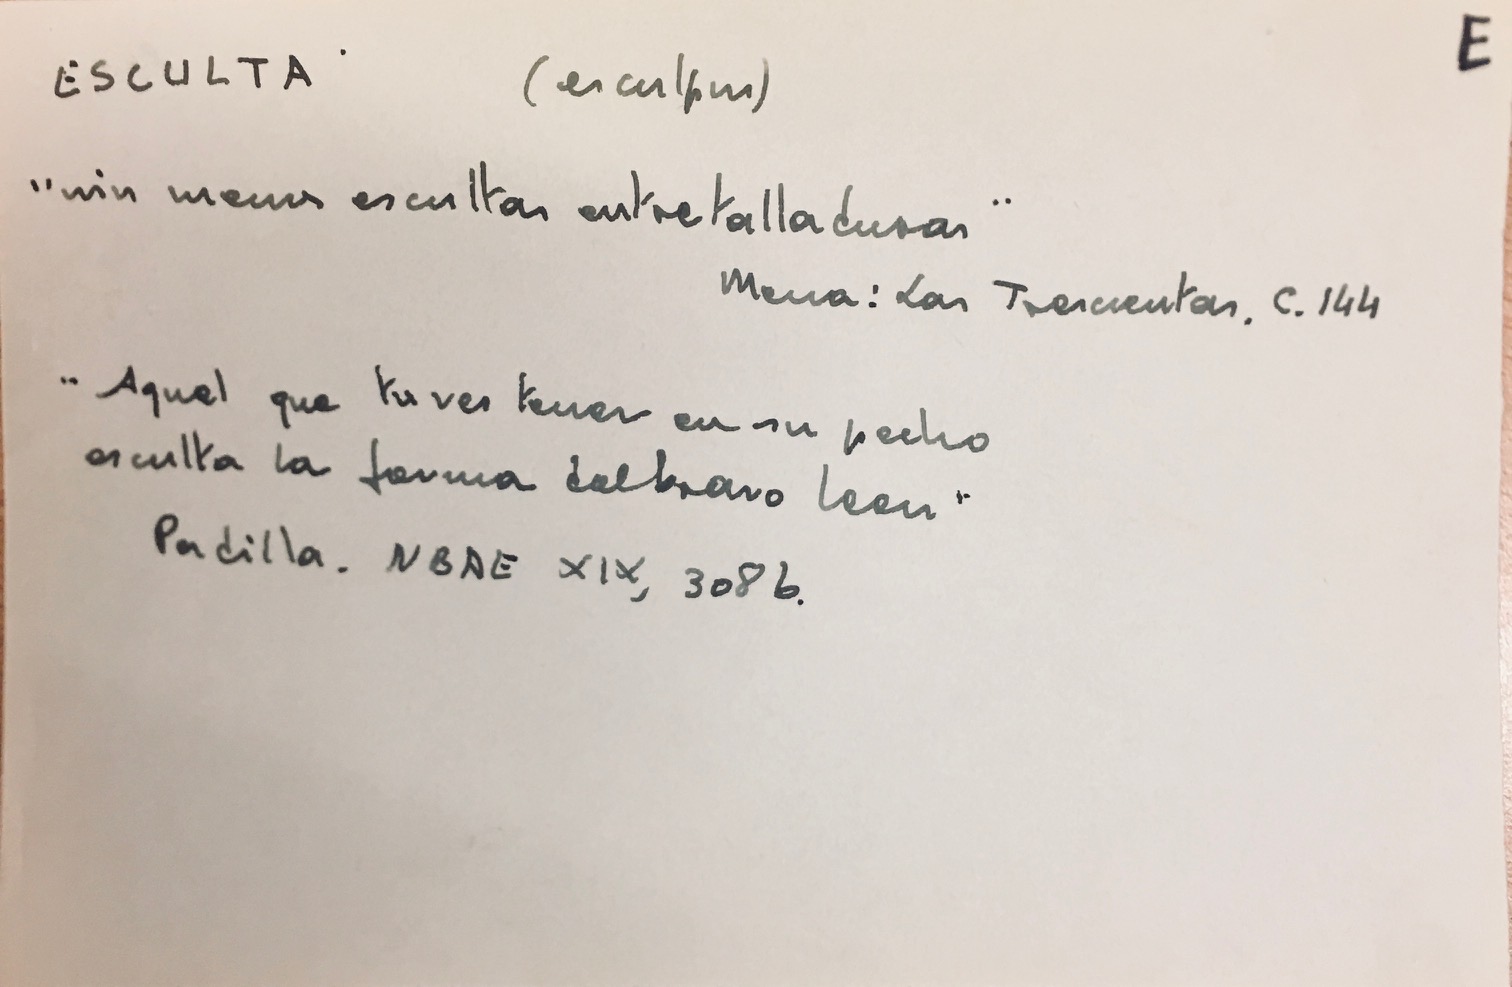 E
ESCULTA (esculpir)
"nin menos escultas entretalladuras"
Mena: Las Trescientas. C. 144
"Aquel que tu ves tener en su pecho
esculta la forma del bravo leon"
Padilla. NBAE XIX, 308 b.